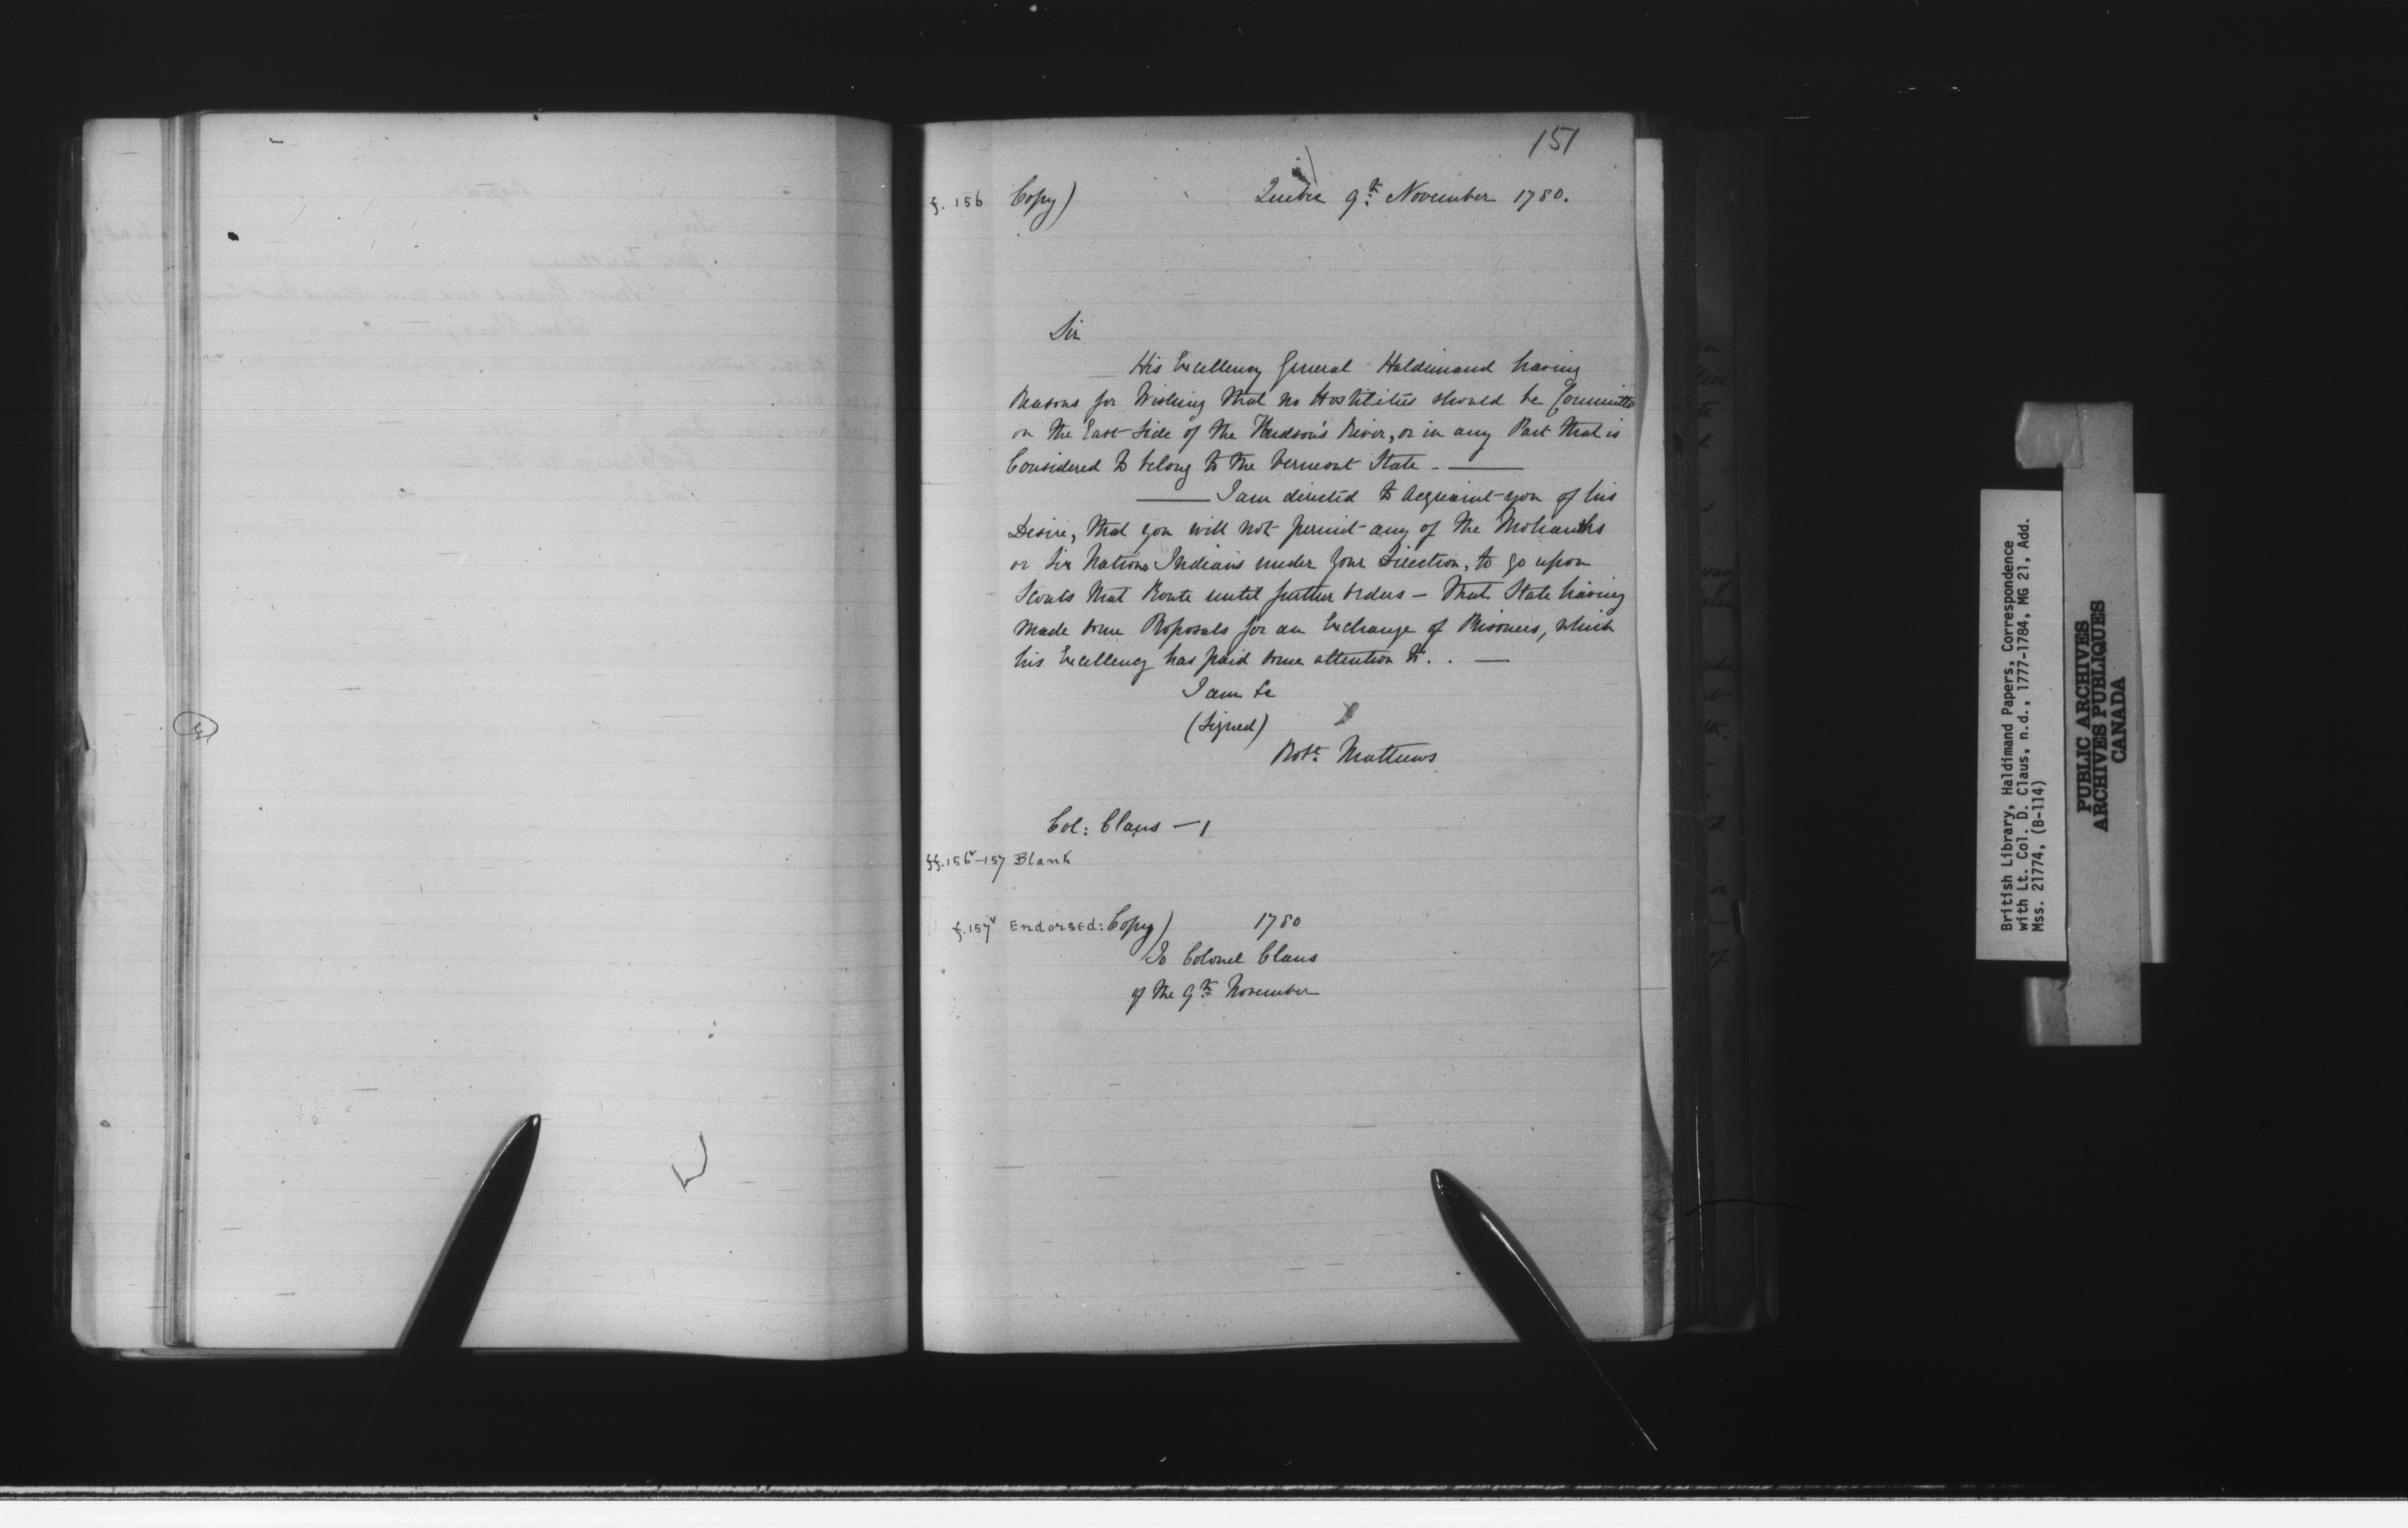 151
f. 156 Copy) Quebec 9th November 1780.
Sir
His Excellency General Haldimand having
Reasons for Wishing that no Hostilities should be Committed
on the East Side of the Hudson's River, or in any Part that is
Considered to belong to the Vermont State -
I am directed to Acquaint you of his
Desire, that you will not permit any of the Mohawks
or Six Nations Indians under Your Direction, to go upon
Scouts that Route until further Orders - that State having
made some Proposals for an Exchange of Prisoners, which
his Excellency has paid some attention to. . -
I am &c
(Signed)
Robt. Mathews
Col: Claus - 1
ff. 156v-157 Blank
f. 157v Endorsed: Copy) 1780
To Colonel Claus
of the 9th November
British Library, Haldimand Papers, Correspondence
with Lt. Col. D. Claus, n.d., 1777-1784, MG 21, Add.
Mss. 21774, (B-114)
PUBLIC ARCHIVES
ARCHIVES PUBLIQUES
CANADA